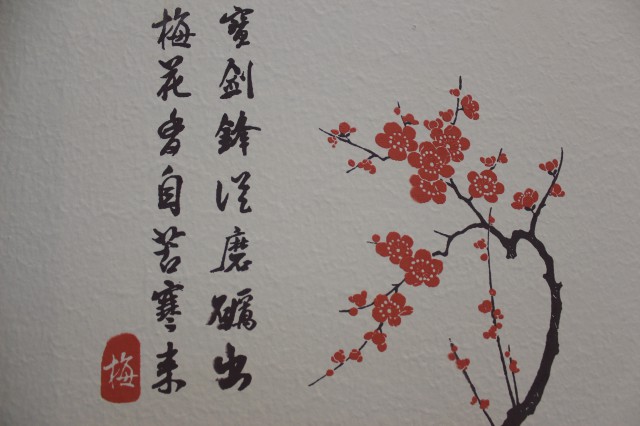 寶劍鋒從磨礪出
梅花香自苦寒來
梅